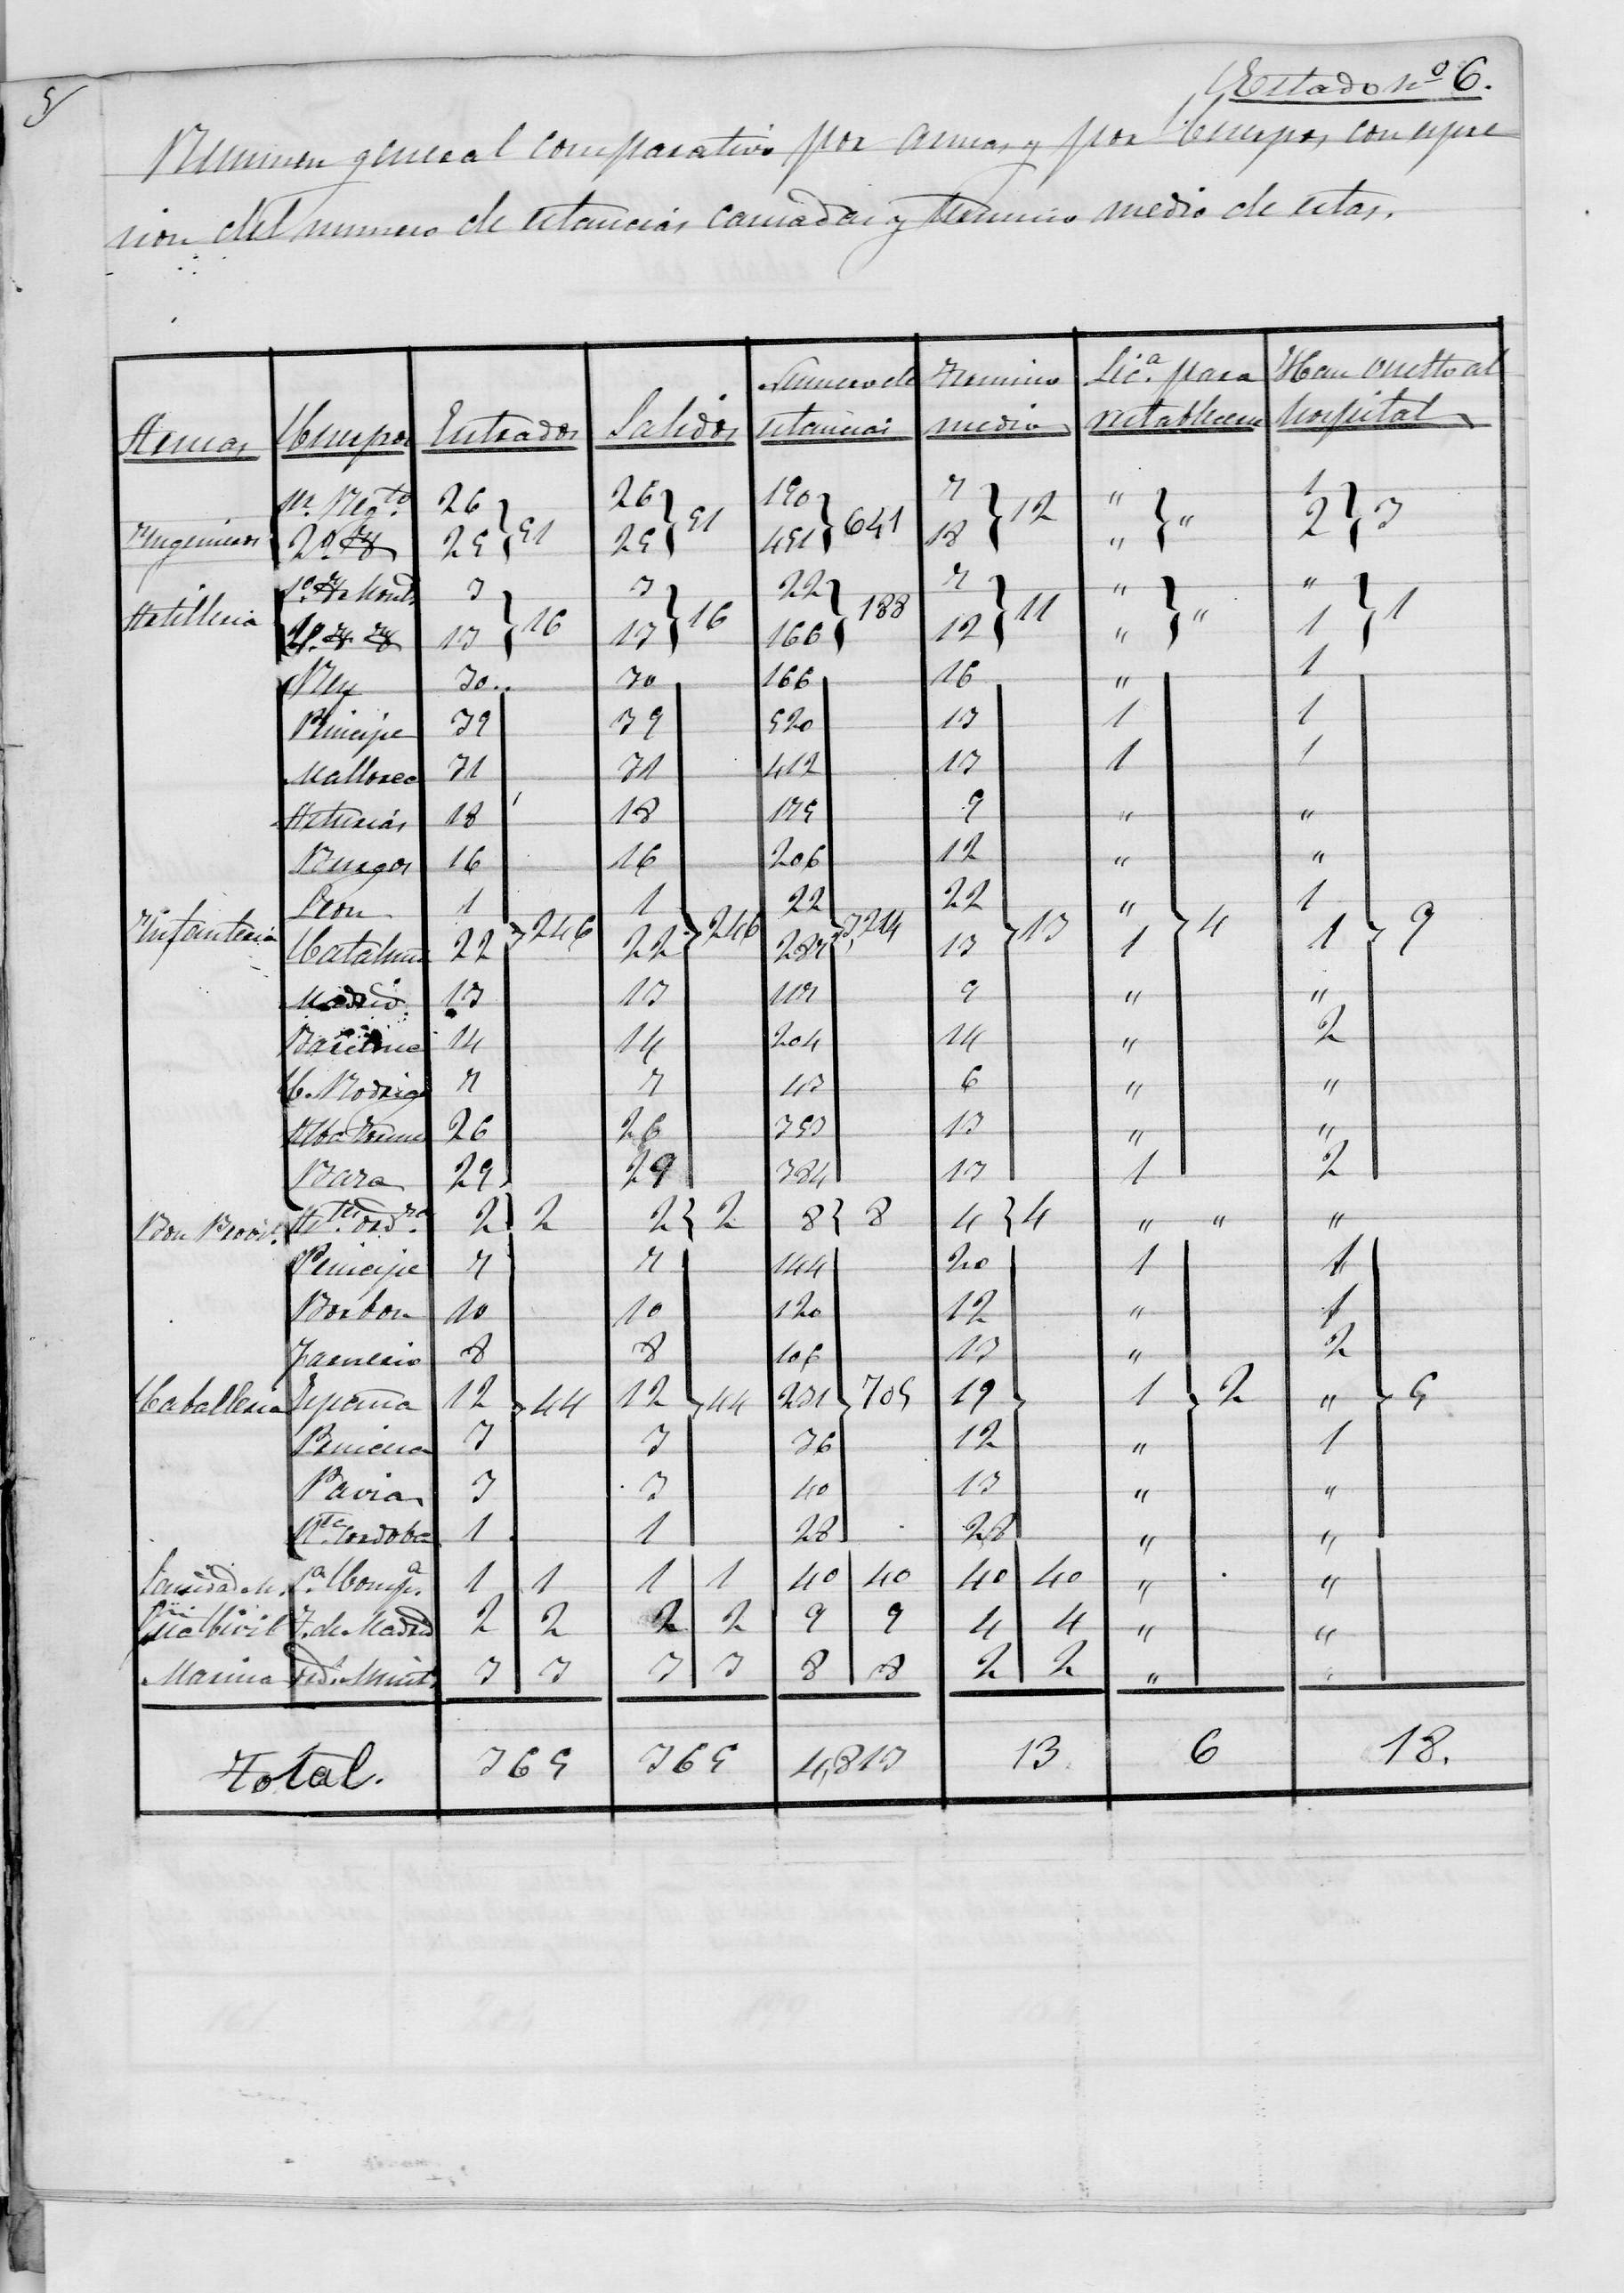 Estado nº 6.
Resumen general comparativo por armas y por Cuerpos, con espre
sion del numero de estancias causadas y termino medio de estas.
Armas Cuerpos Entrados Salidos Numero de estancias Termino medio Lic.ª para restablecerse Han vuelto al hospital
Ingenieros 1.r Reg.to 26 26 190 7 " 1
2º 25 } 51 25 } 51 451 } 641 18 } 12 " } " 2 } 3
Artilleria 1º 3 3 22 7 " "
2º 13 } 16 13 } 16 166 } 188 12 } 11 " } " 1 } 1
Rey 30 30 166 16 " 1
Principe 39 39 520 13 1 1
Mallorca 31 31 412 13 1 1
Asturias 18 18 175 9 " "
Burgos 16 16 206 12 " "
Leon 1 1 22 22 " 1
Infanteria Cataluña 22 } 246 22 } 246 287 } 3,214 13 } 13 1 } 4 1 } 9
Madrid 13 13 119 9 " "
Barcelona 14 14 204 14 " 2
C. Rodrigo 7 7 43 6 " "
Alba Tormes 26 26 353 13 " "
Baza 29 29 384 13 1 2
Bon Provl. 2 } 2 2 } 2 8 } 8 4 } 4 " " "
Principe 7 7 144 20 1 1
Borbon 10 10 120 12 " 1
Farnesio 8 8 106 13 " 2
Caballeria España 12 } 44 12 } 44 231 } 705 19 } 1 } 2 " } 5
Princesa 3 3 36 12 " 1
Pavia 3 3 40 13 " "
Rte. Cordoba 1 1 28 28 " "
Sanidad M. 1.ª Comp.ª 1 1 1 1 40 40 40 40 " "
Gua Civil T. de Madrid 2 2 2 2 9 9 4 4 " "
Marina 3 3 3 3 8 8 2 2 " "
Total. 365 365 4,813 13 6 18.